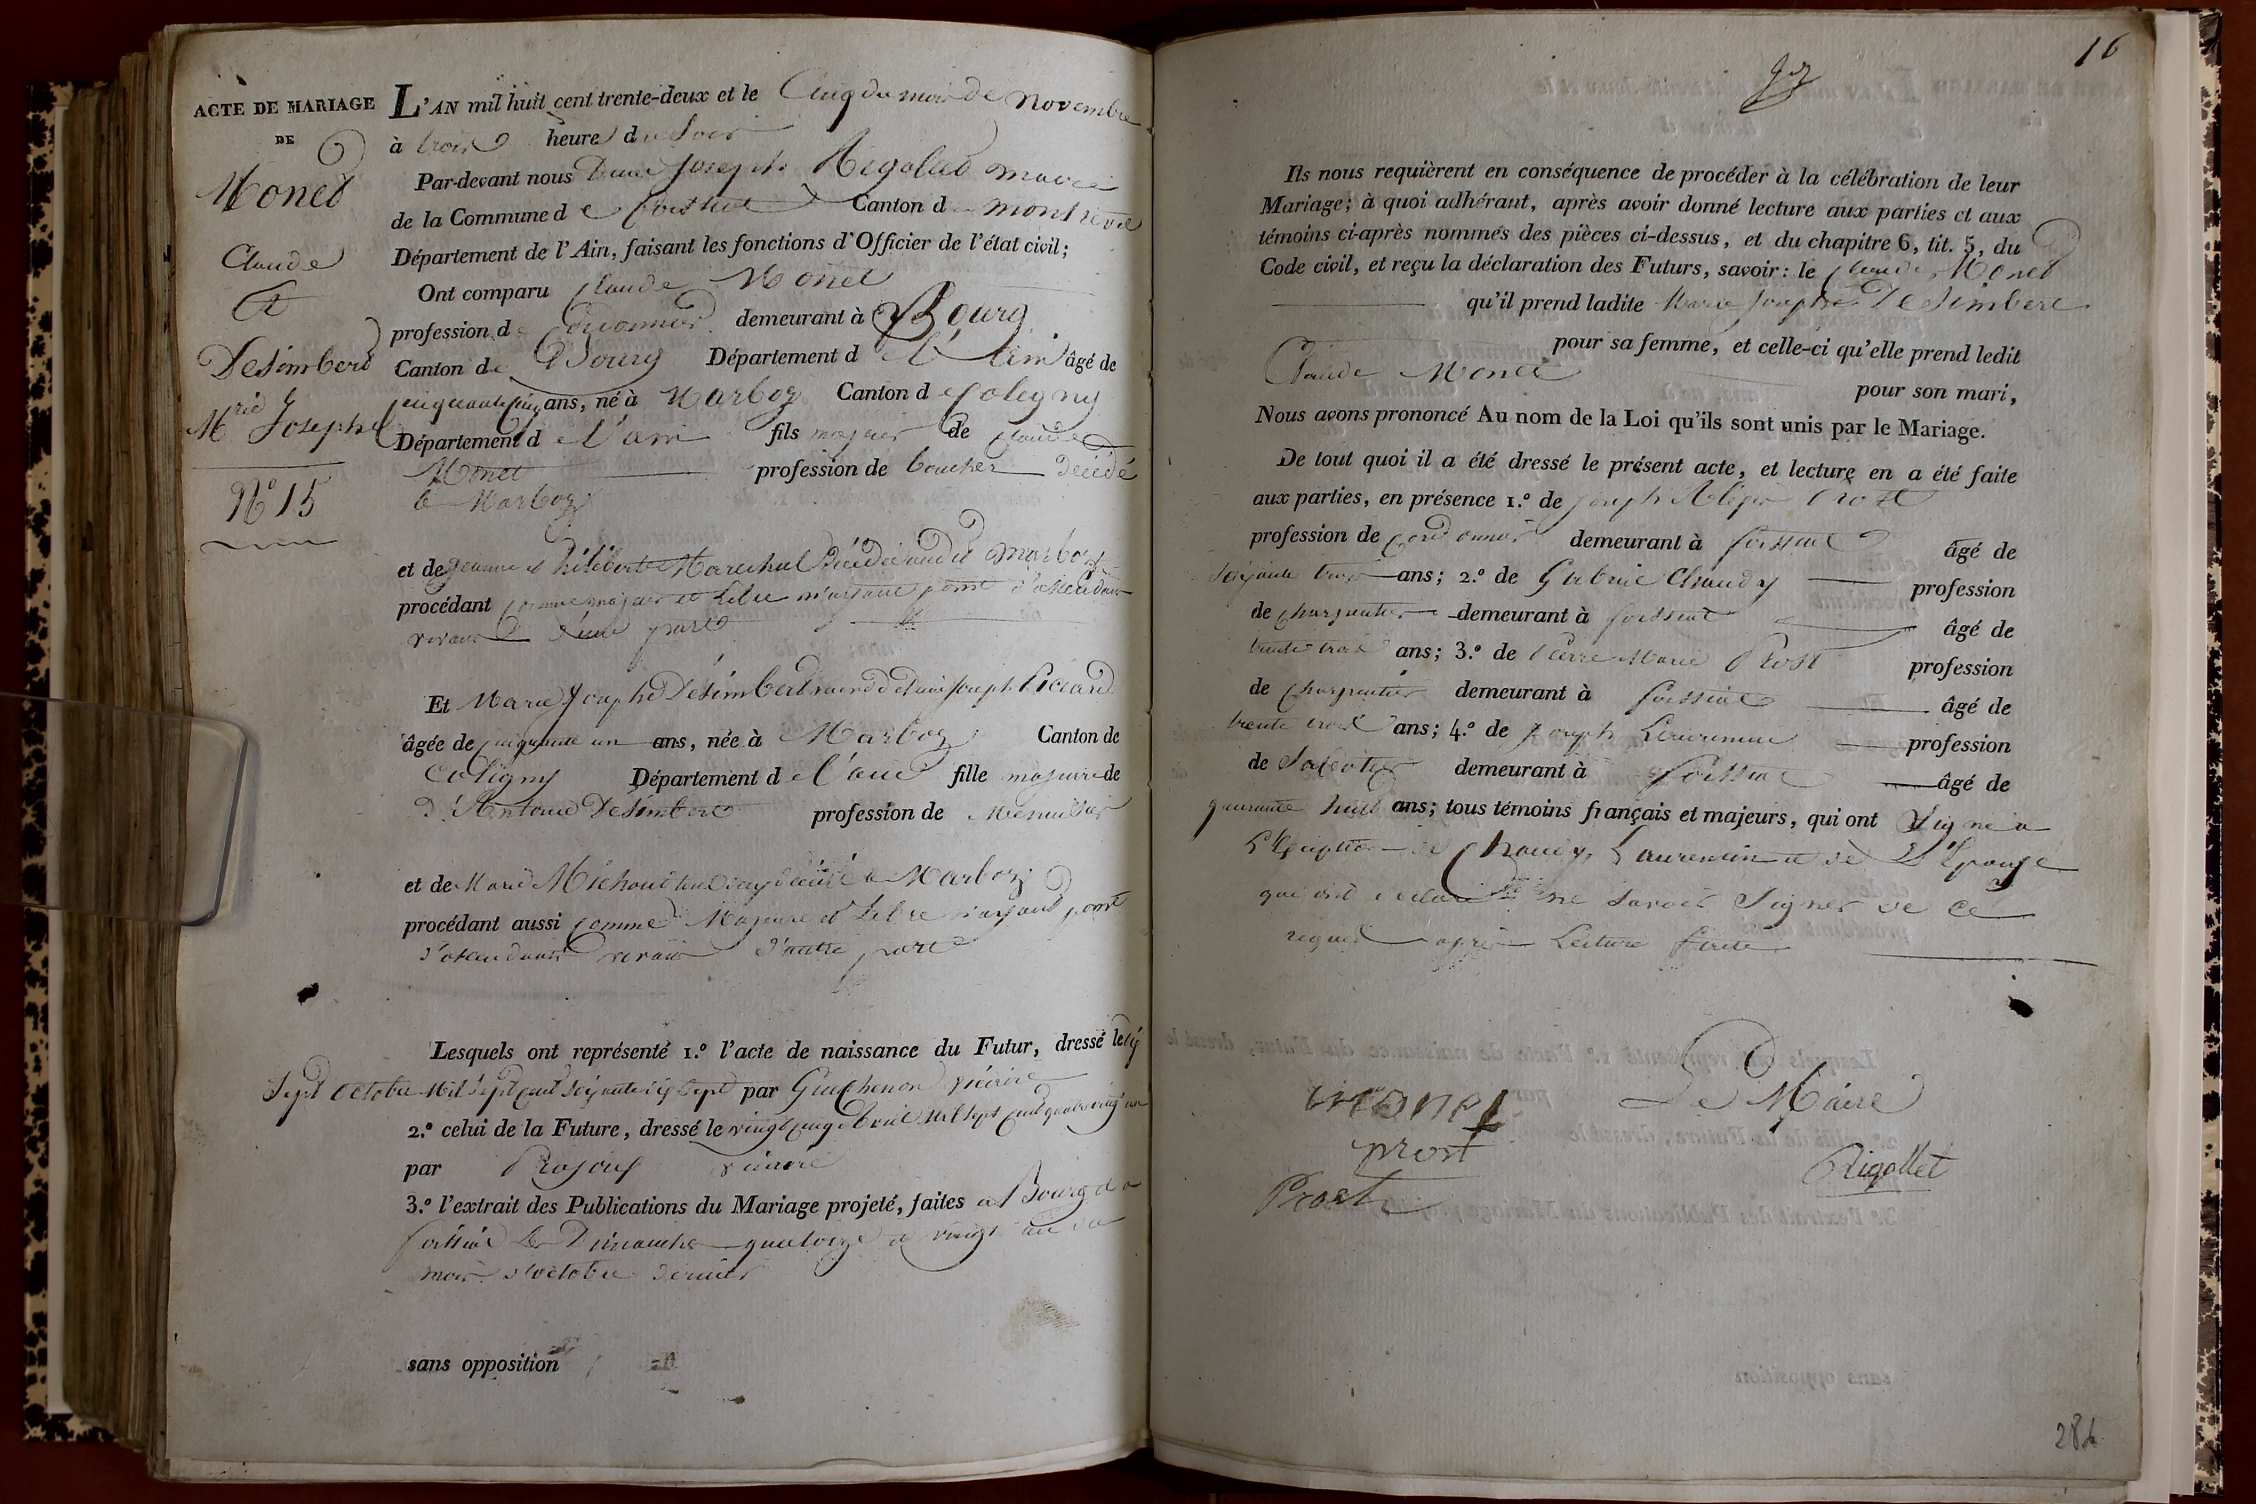 ACTE DE MARIAGE
DE
Monet
Claude
Et
Desimbert
Mrie Josephe
N.º 15
L'AN mil huit cent trente-deux et le Cinq du mois de novembre
à trois heure du Soir
Par-devant nous Joseph Rigollet maire
de la Commune de foissiat Canton de montrevel
Département de l'Ain, faisant les fonctions d'Officier de l'état civil;
Ont comparu Claude Monet
profession de Cordonnier demeurant à Bourg
Canton de Bourg Département de l'ain âgé de
cinquante cinq ans, né à Marboz Canton de Coligny
Département de l'ain fils majeur de Claude
Monet profession de boucher décédé
à Marboz
et de jeanne hélibert Marechal Décédée audit marboz
procédant comme majeur et Libre n'ayant point d'ascendans
vivans d'une part
Et Marie Josephe Desimbert veuve de Joseph Picard
âgée de cinquante un ans, née à Marboz Canton de
Coligny Département de l'ain fille majeure de
d'Antoine Desimbert profession de Menuisier
et de Marie Michoud tous deux décédé à Marboz
procédant aussi comme Majeure et Libre n'ayant point
d'ascendants vivans d'autre part
Lesquels ont représenté 1.º l'acte de naissance du Futur, dressé le dix
Sept octobre Mil sept cent soixante dix sept par Guichenon vicaire
2.º celui de la Future, dressé le vingt cinq avril Mil sept cent quatre vingt un
par vicaire
3.º l'extrait des Publications du Mariage projeté, faites à Bourg et à
foissiat Les Dimanches quatorze et vingt un du
mois d'octobre dernier
sans opposition
16
Ils nous requièrent en conséquence de procéder à la célébration de leur
Mariage; à quoi adhérant, après avoir donné lecture aux parties et aux
témoins ci-après nommés des pièces ci-dessus, et du chapitre 6, tit. 5, du
Code civil, et reçu la déclaration des Futurs, savoir: le Claude Monet
qu'il prend ladite Marie Josephe Desimbert
pour sa femme, et celle-ci qu'elle prend ledit
Claude Monet pour son mari,
Nous avons prononcé Au nom de la Loi qu'ils sont unis par le Mariage.
De tout quoi il a été dressé le présent acte, et lecture en a été faite
aux parties, en présence 1.º de Joseph Prost
profession de Cordonnier demeurant à foissiat âgé de
soixante trois ans; 2.º de Gabriel Chaudy profession
de charpentier demeurant à foissiat âgé de
trente trois ans; 3.º de Pierre Marie Prost profession
de Charpentier demeurant à foissiat âgé de
trente trois ans; 4.º de Joseph Laurencin profession
de Sabotier demeurant à foissiat âgé de
quarante huit ans; tous témoins français et majeurs, qui ont Signé à
L'Exception de Chaudy, Laurencin et de L'Epouse
qui ont déclaré ne savoir Signer de ce
requis après Lecture faite
monet
prost
Prost
Le Maire
Rigollet
284